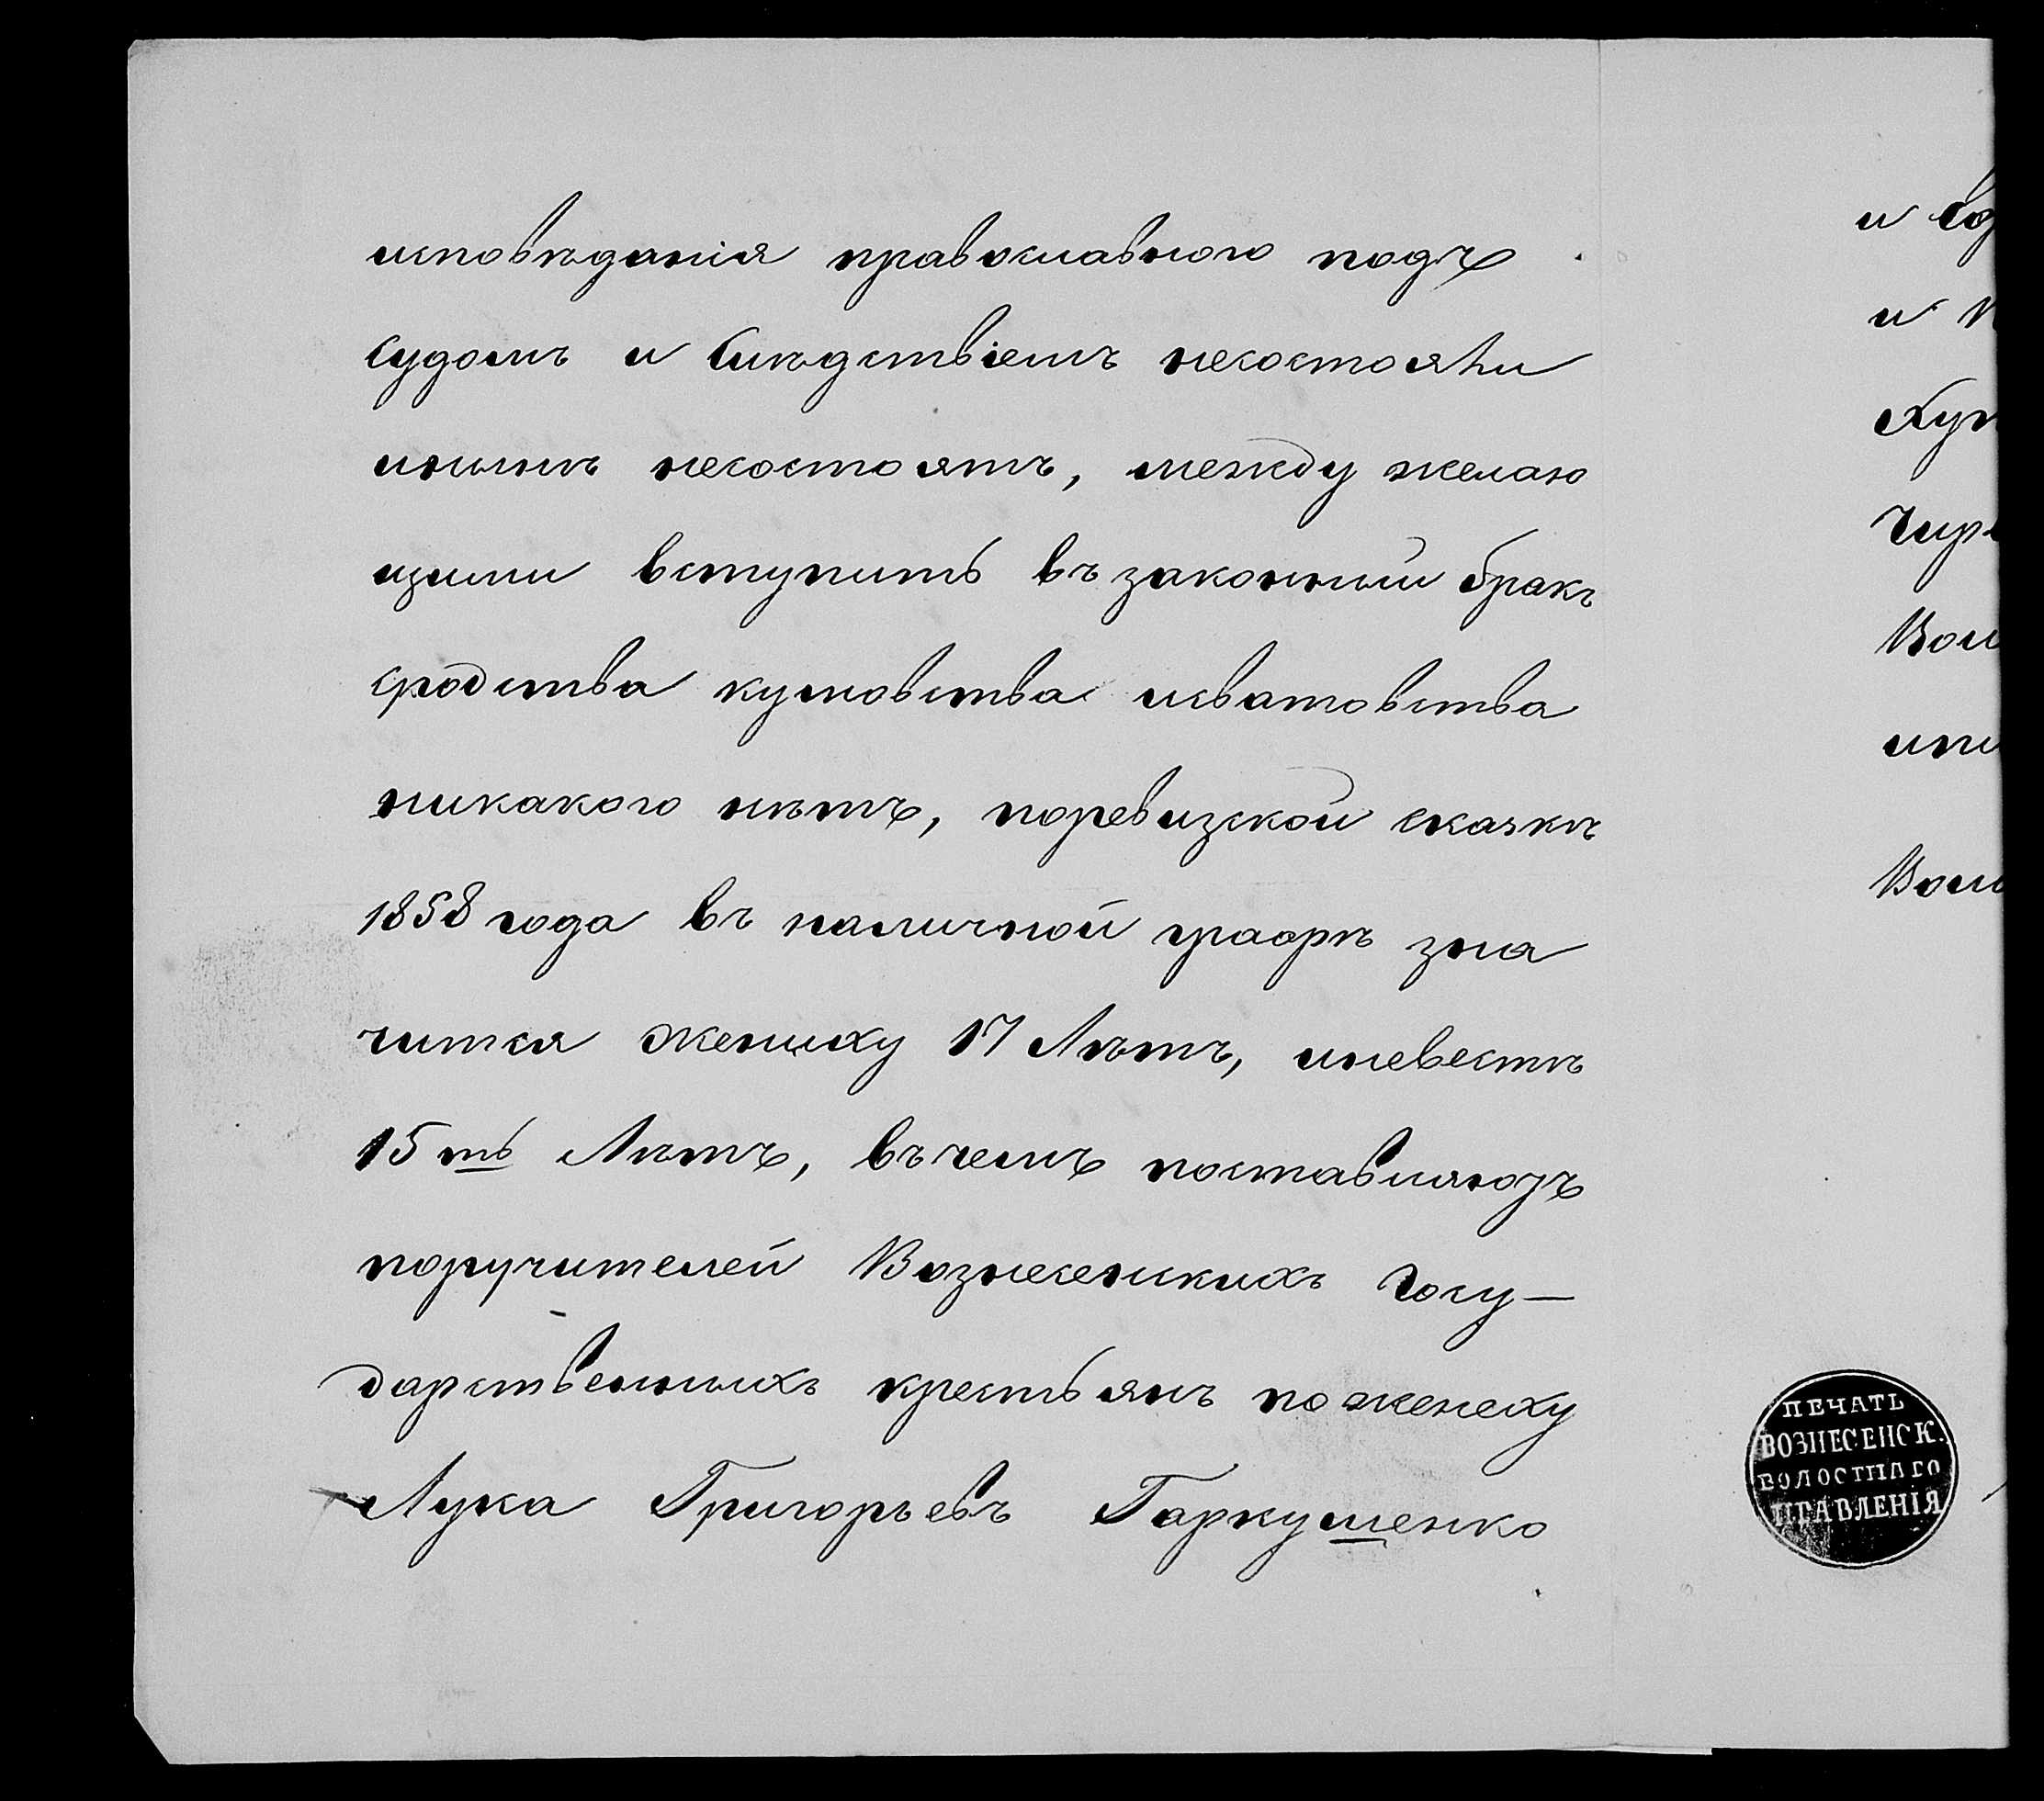 исповѣданія православного подъ
судомъ и слѣдствіемъ несостояли
инынѣ несостоятъ, между желаю
щими вступить въ законный бракъ
сродства кумовства исватовства
никакого нѣтъ, поревизской сказкѣ
1858 года въ наличной графѣ зна
чится жениху 17 Лѣтъ, иневестѣ
15 ть Лѣтъ, въ чемъ поставляютъ
поручителей Вознесенскихъ Госу—
дарственныхъ крестьянъ по женеху
Лука Григорьевъ Гаркушенко
и
и
ПЕЧАТЬ
ВОЗНЕСЕНСК.
ВОЛОСТНАГО
ПРАВЛЕНІЯ